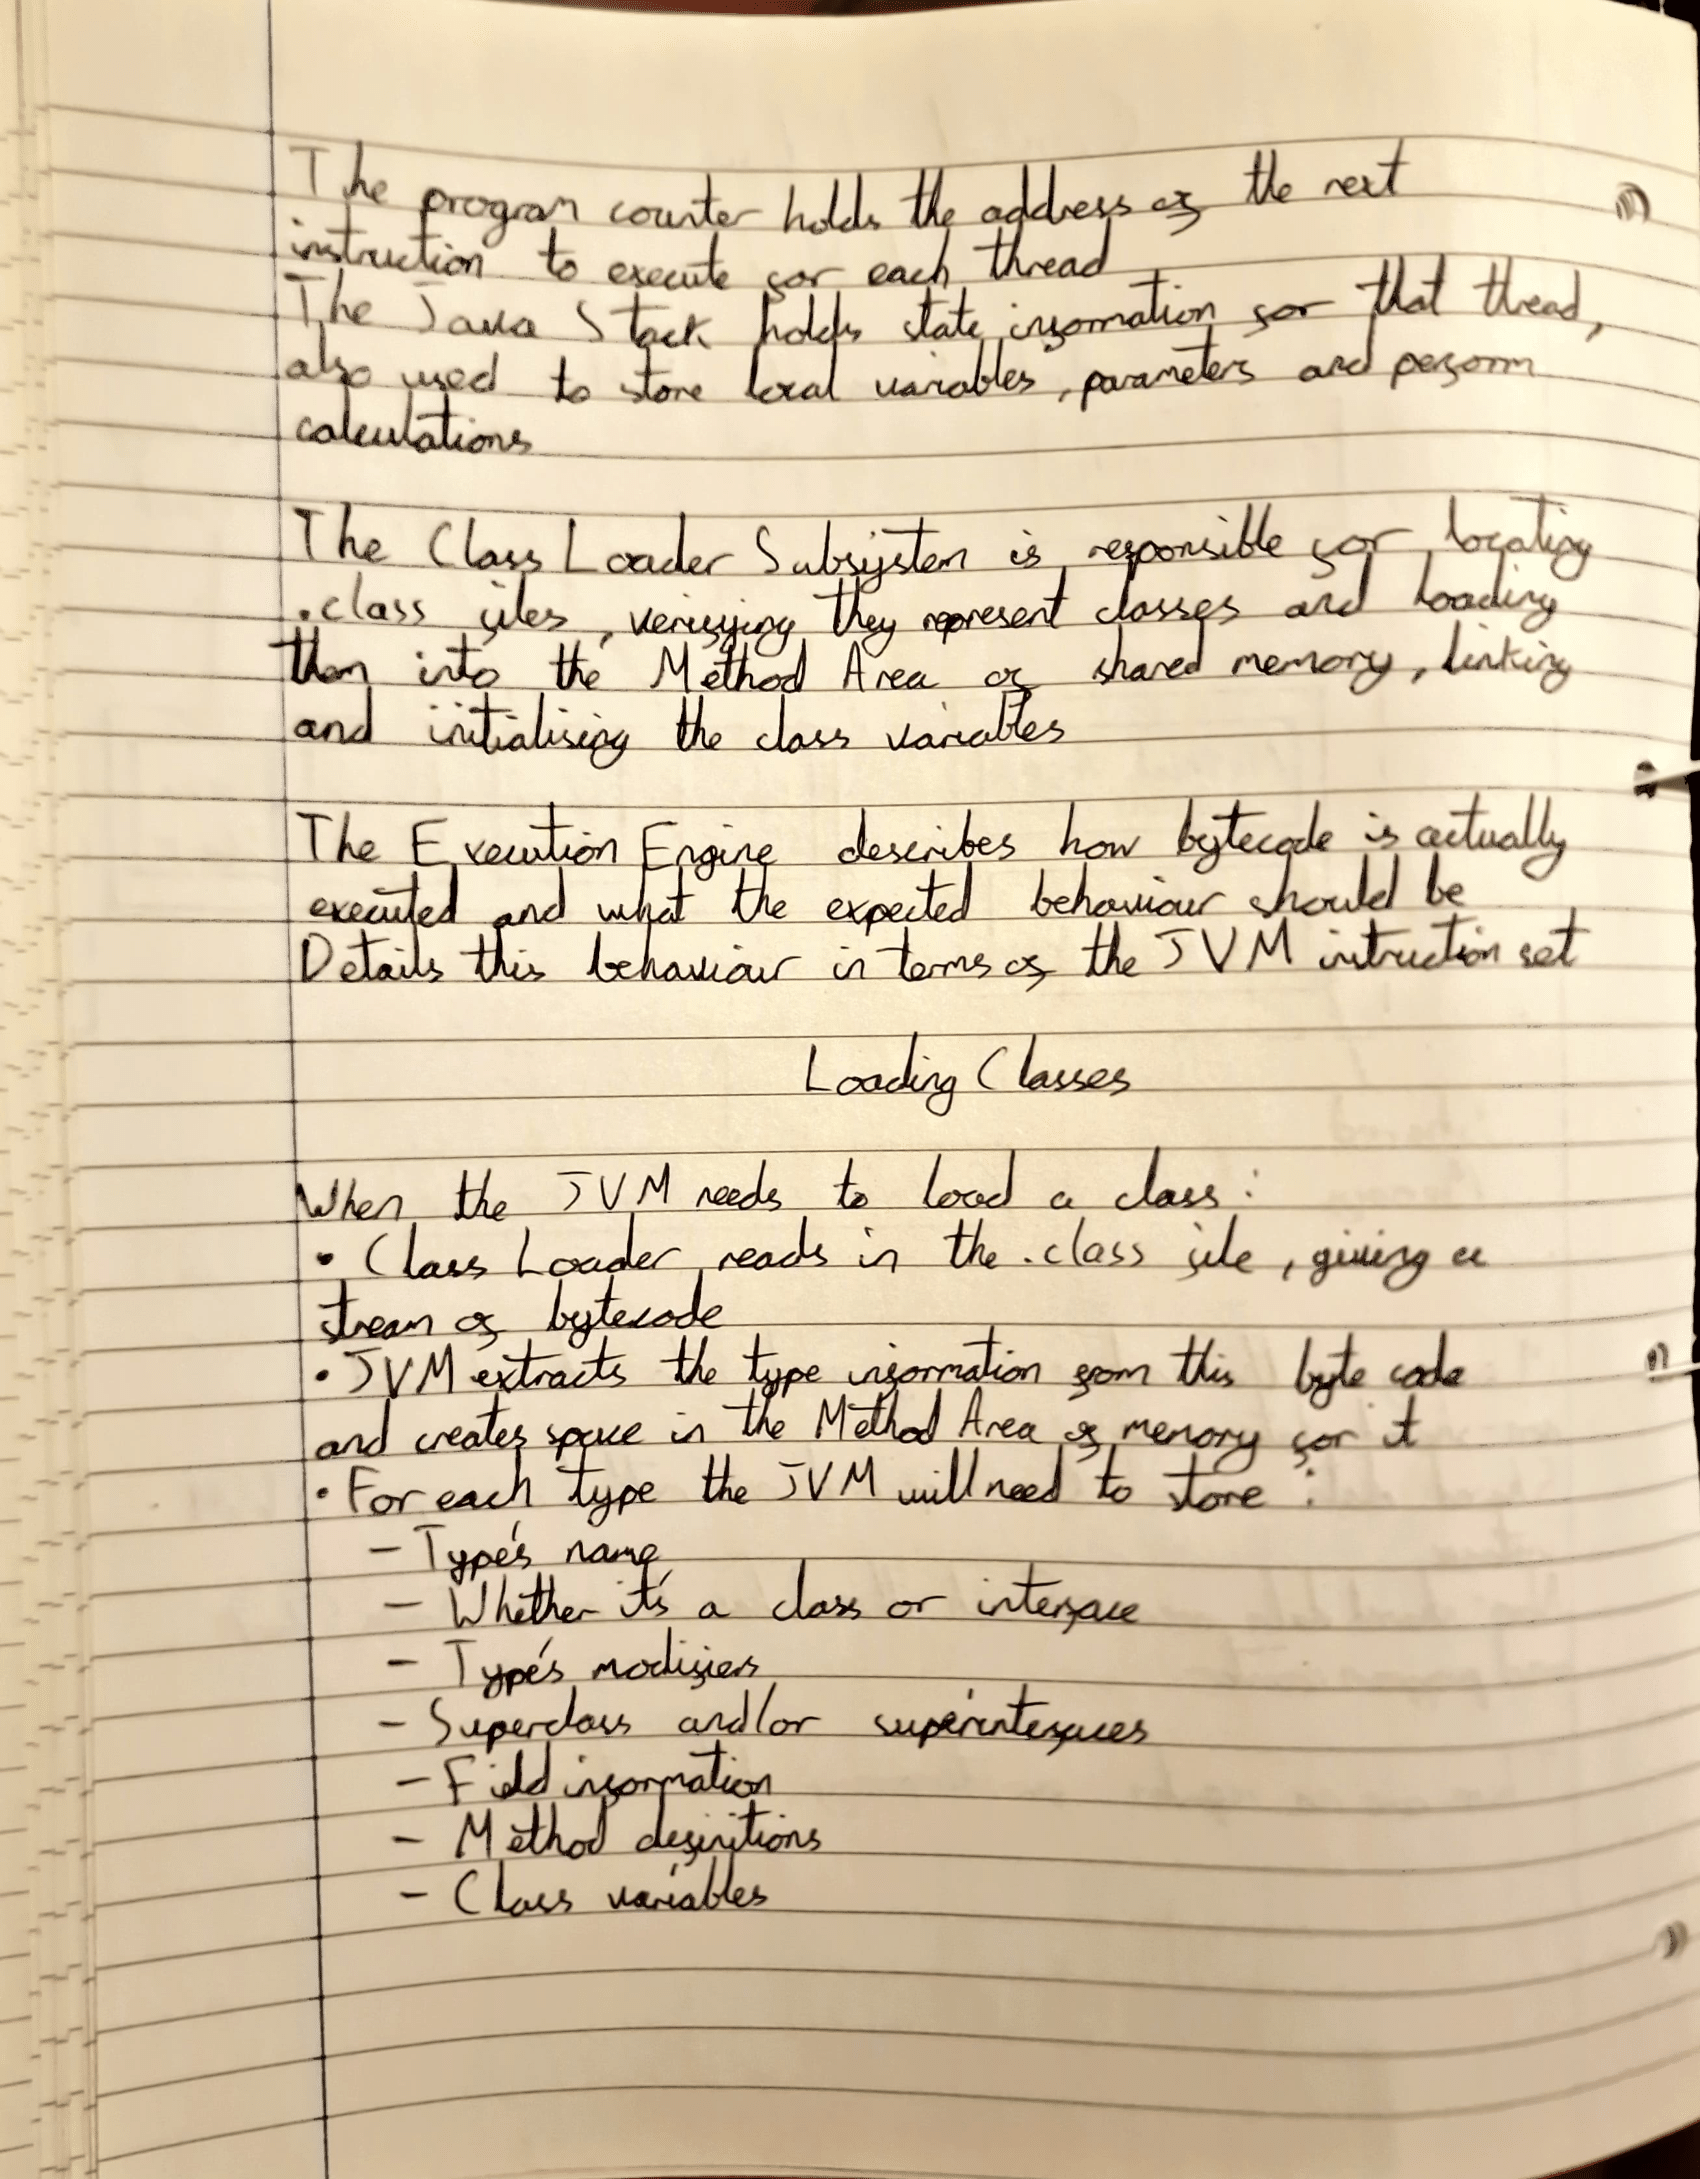 The program counter holds the address of the next
instruction to execute for each thread
The Java Stack holds state information for that thread,
also used to store local variables, parameters and perform
calculations
The Class Loader Subsystem is responsible for locating
.class files, verifying they represent classes and loading
them into the Method Area of shared memory, linking
and initialising the class variables
The Execution Engine describes how bytecode is actually
executed and what the expected behaviour should be
Details this behaviour in terms of the JVM intruction set
Loading Classes
When the JVM needs to load a class:
• Class Loader reads in the .class file, giving a
stream of bytecode
• JVM extracts the type information from this byte code
and creates space in the Method Area of memory for it
• For each type the JVM will need to store:
- Type's name
- Whether it's a class or interface
- Type's modifiers
- Superclass and/or superinterfaces
- Field information
- Method definitions
- Class variables